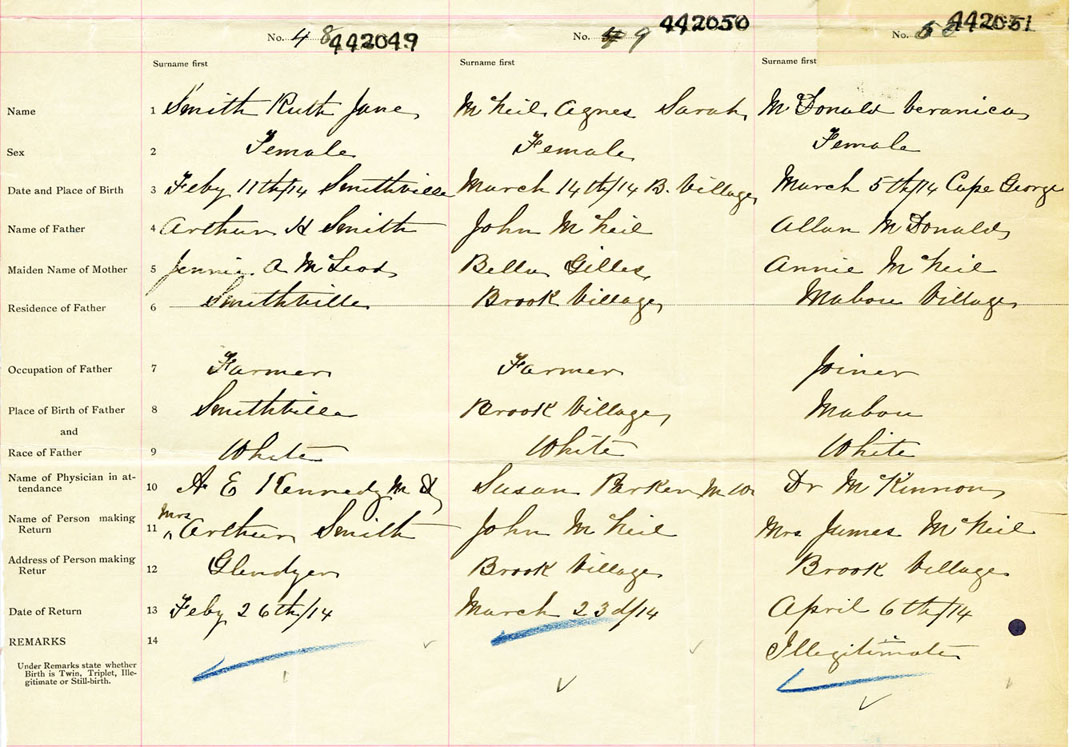 No. 48 442049 No. 49 442050 No. 50 442051
Surname first Surname first Surname first
Name 1 Smith Ruth Jane McNeil Agnes Sarah McDonald Veranica
Sex 2 Female Female Female
Date and Place of Birth 3 Feby 11th/14 Smithville March 14th/14 B. Village March 5th/14 Cape George
Name of Father 4 Arthur H Smith John McNeil Allan McDonald
Maiden Name of Mother 5 Jennie A McLeod Bella Gilles Annie McNeil
Residence of Father 6 Smithville Brook Village Mabou Village
Occupation of Father 7 Farmer Farmer Joiner
Place of Birth of Father 8 Smithville Brook Village Mabou
and
Race of Father 9 White White White
Name of Physician in at-
tendance 10 A E Kennedy M D Susan Berken M W Dr McKinnon
Name of Person making
Return 11 Mrs Arthur Smith John McNeil Mrs James McNeil
Address of Person making
Retur 12 Glendyer Brook Village Brook Village
Date of Return 13 Feby 26th/14 March 23d/14 April 6th/14
REMARKS 14 Illegitimate
Under Remarks state whether
Birth is Twin, Triplet, Ille-
gitimate or Still-birth.